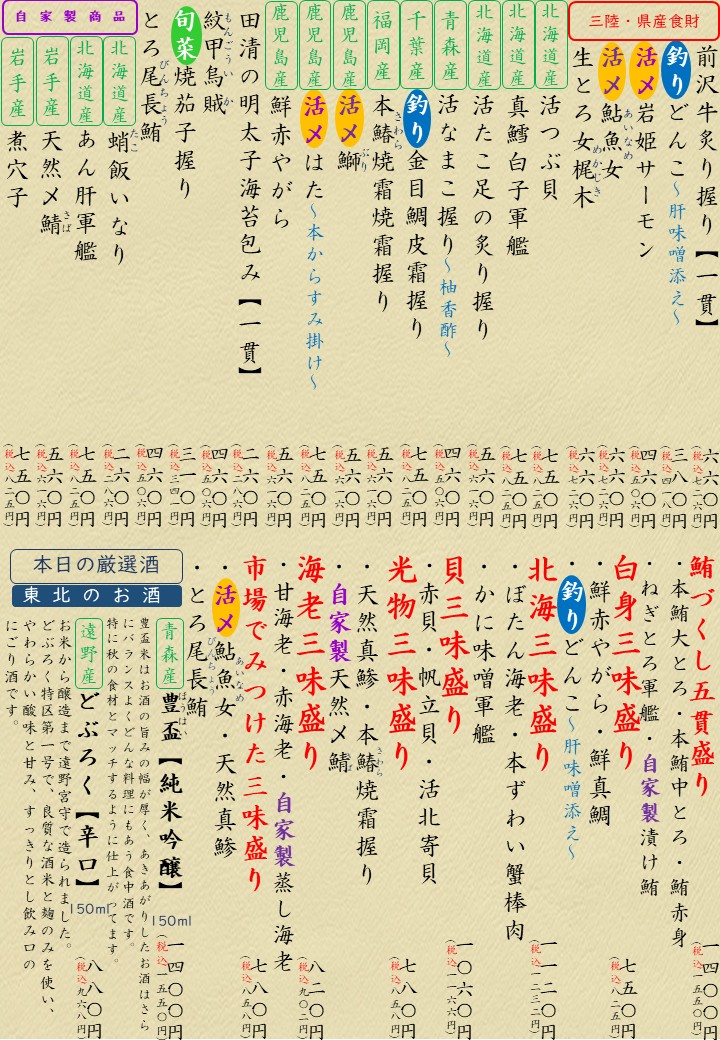 三陸・県産食財
前沢牛炙り握り【一貫】 六六〇円 (税込七二六円)
釣り どんこ～肝味噌添え～ 三八〇円 (税込四一八円)
活〆 岩姫サーモン 四六〇円 (税込五〇六円)
活〆 鮎魚女 あいなめ 六六〇円 (税込七二六円)
生とろ女梶木 めかじき 六六〇円 (税込七二六円)
北海道産 活つぶ貝 七五〇円 (税込八二五円)
北海道産 真鱈白子軍艦 七五〇円 (税込八二五円)
北海道産 活たこ足の炙り握り 五六〇円 (税込六一六円)
青森産 活なまこ握り～柚香酢～ 四六〇円 (税込五〇六円)
千葉産 釣り 金目鯛皮霜握り 七五〇円 (税込八二五円)
福岡産 本鰆焼霜焼霜握り さわら 五六〇円 (税込六一六円)
鹿児島産 活〆 鰤 ぶり 五六〇円 (税込六一六円)
鹿児島産 活〆 はた～本からすみ掛け～ 七五〇円 (税込八二五円)
鹿児島産 鮮赤やがら 五六〇円 (税込六一六円)
田清の明太子海苔包み【一貫】 二六〇円 (税込二八六円)
紋甲烏賊 もんごういか 四六〇円 (税込五〇六円)
旬菜 焼茄子握り 三一〇円 (税込三四一円)
とろ尾長鮪 びんちょう 四六〇円 (税込五〇六円)
自家製商品
北海道産 蛸飯いなり たこ 二六〇円 (税込二八六円)
北海道産 あん肝軍艦 七五〇円 (税込八二五円)
岩手産 天然〆鯖 さば 五六〇円 (税込六一六円)
岩手産 煮穴子 七五〇円 (税込八二五円)
鮪づくし五貫盛り
・本鮪大とろ・本鮪中とろ・鮪赤身
・ねぎとろ軍艦・自家製漬け鮪
一四〇〇円 (税込一五五〇円)
白身三味盛り
・鮮赤やがら・鮮真鯛
・釣り どんこ～肝味噌添え～
七五〇円 (税込八二五円)
北海三味盛り
・ぼたん海老・本ずわい蟹棒肉
・かに味噌軍艦
一一二〇円 (税込一二三二円)
貝三味盛り
・赤貝・帆立貝・活北寄貝
一〇六〇円 (税込一一六六円)
光物三味盛り
・天然真鯵・本鰆焼霜握り さわら
・自家製天然〆鯖 さば
七八〇円 (税込八五八円)
海老三味盛り
・甘海老・赤海老・自家製蒸し海老
八二〇円 (税込九〇二円)
市場でみつけた三味盛り
・活〆 鮎魚女・天然真鯵 あいなめ
・とろ尾長鮪 びんちょう
七八〇円 (税込八五八円)
本日の厳選酒
東北のお酒
青森産 豊盃【純米吟醸】 ほうはい 150ml 一四〇〇円 (税込一五五〇円)
豊盃米はお酒の旨みの幅が厚く、あきあがりしたお酒はさら
にバランスよくどんな料理にもあう食中酒です。
特に秋の食材とマッチするように仕上がってます。
遠野産 どぶろく【辛口】 150ml 八八〇円 (税込九六八円)
お米から醸造まで遠野宮守で造られました。
どぶろく特区第一号で、良質な酒米と麹のみを使い、
やわらかい酸味と甘み、すっきりとし飲み口の
にごり酒です。